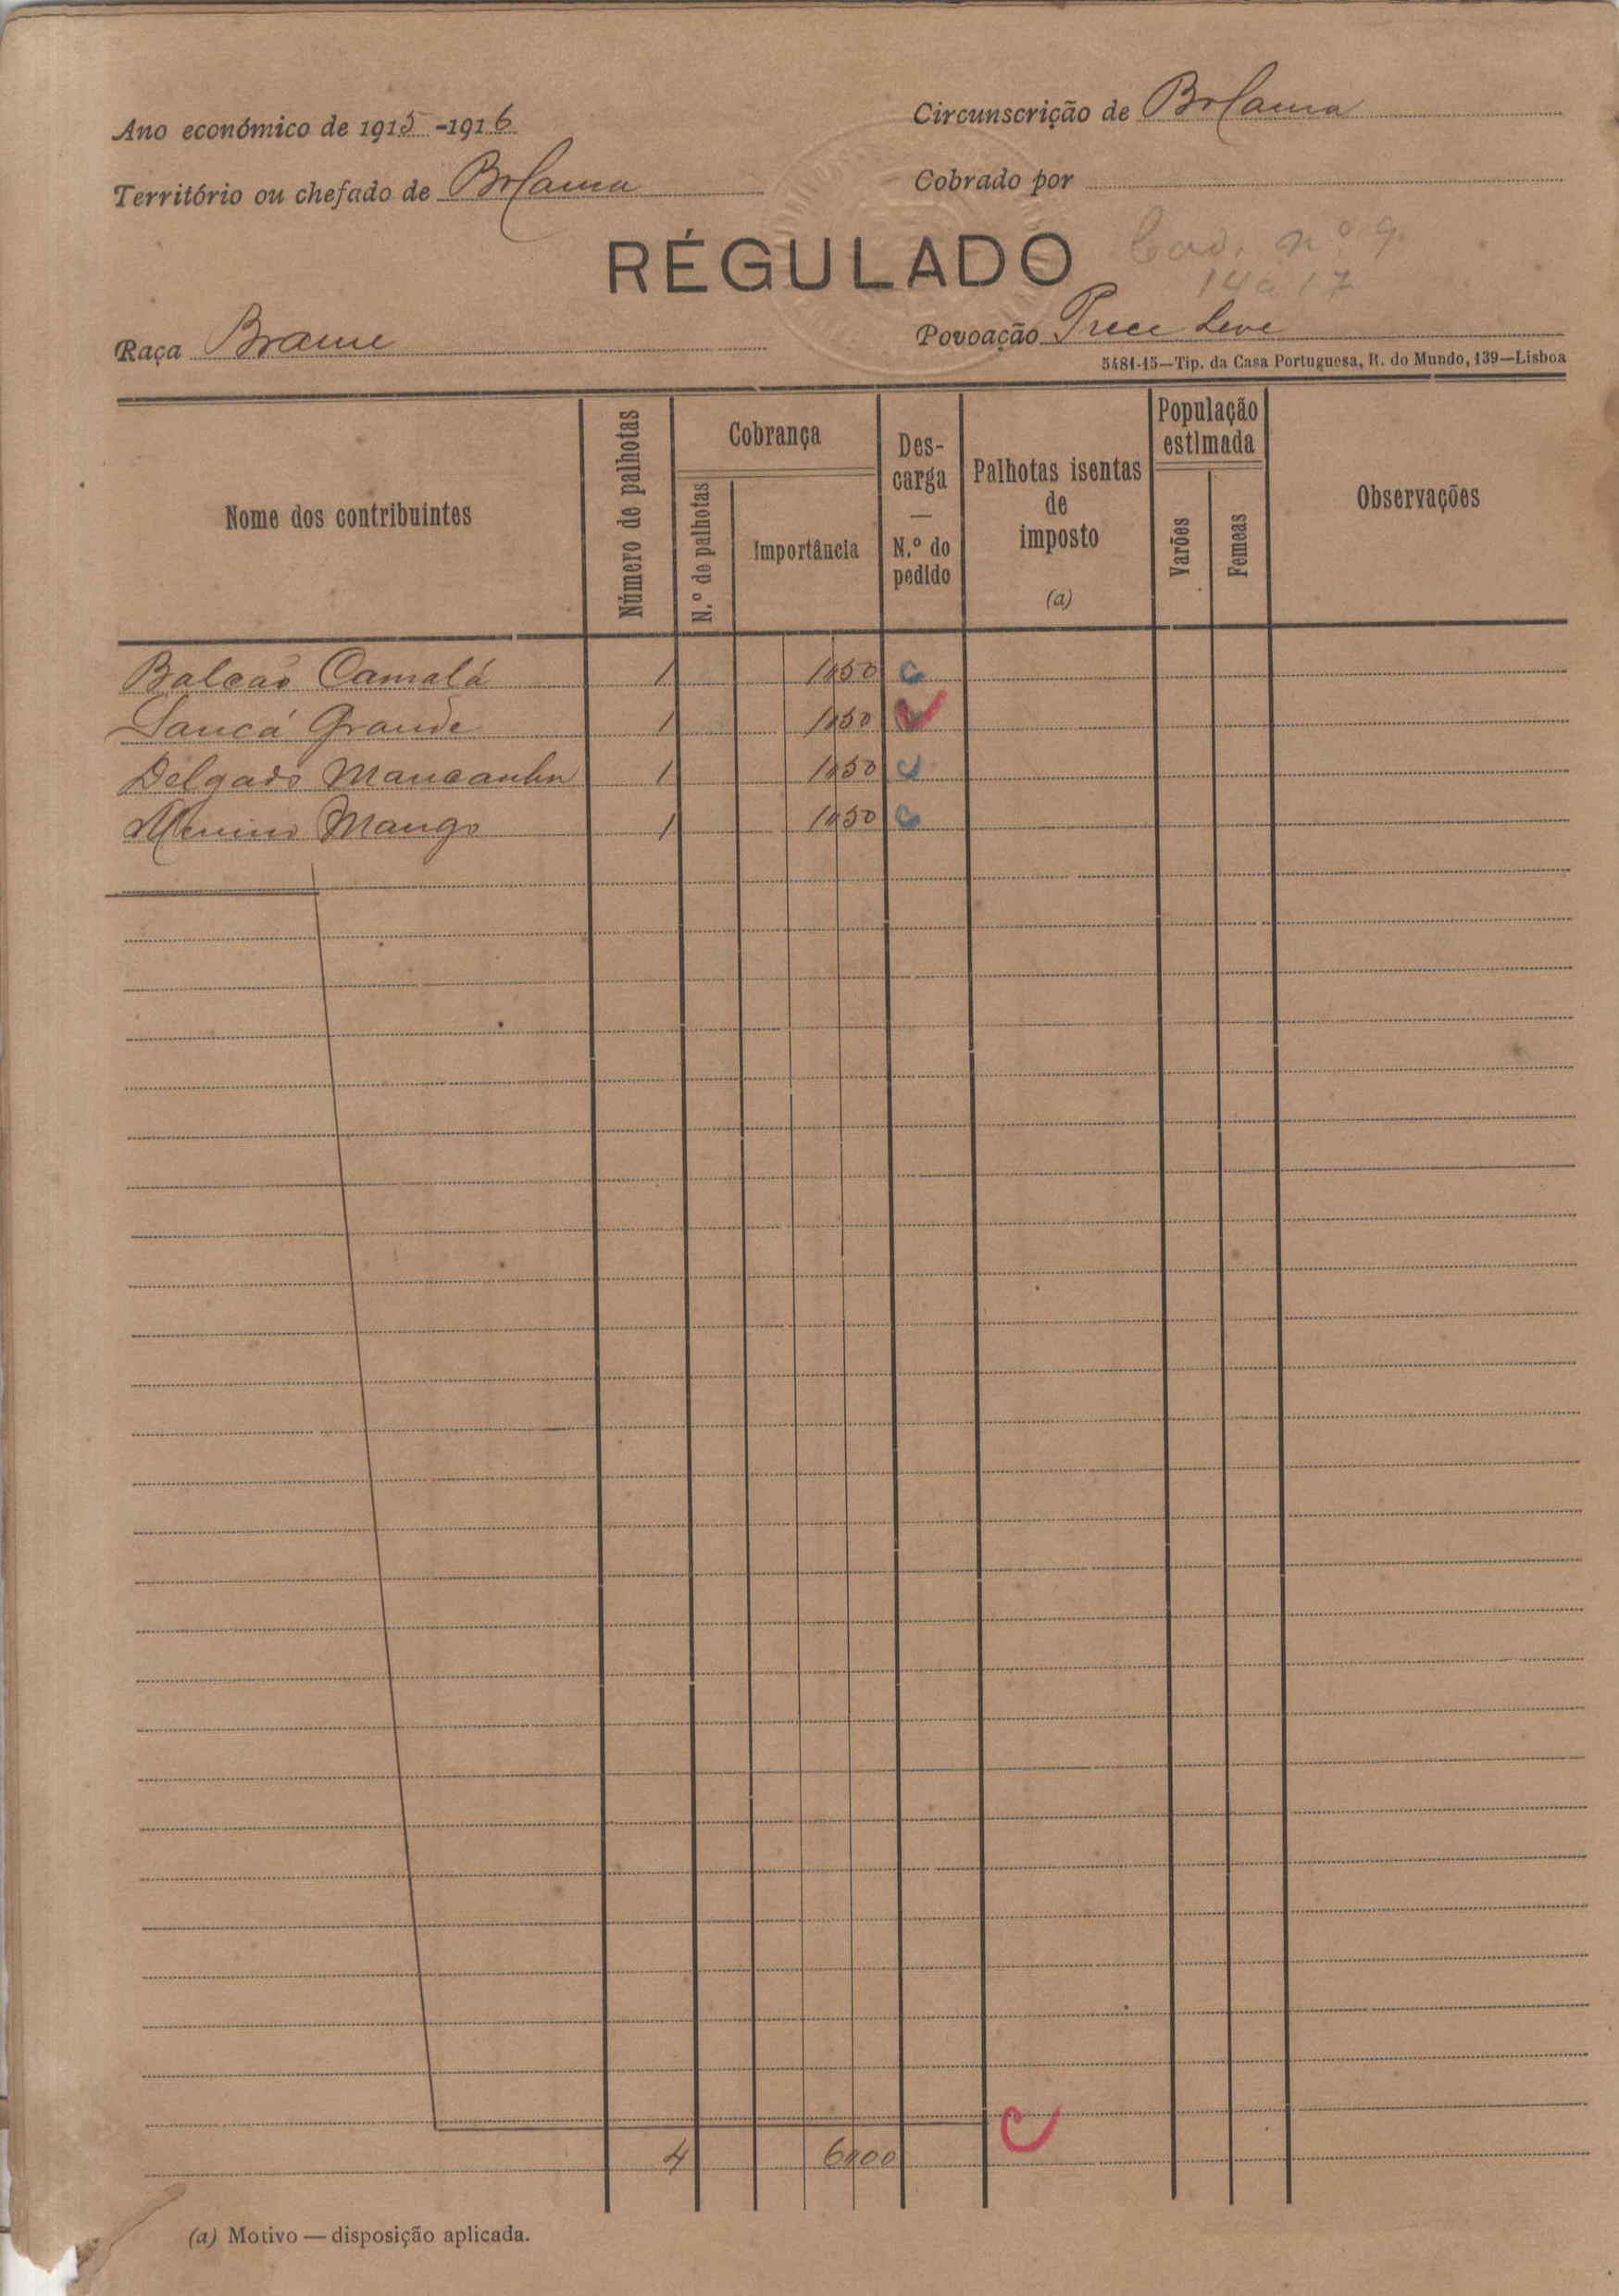 Ano económico de 1915-1916
Circunscrição de Bolama
Território ou chefado de Bolama
Cobrado por
RÉGULADO
Cad. nº 9
14 a 17
Raça Brame
Povoação Prece Leve
5481-15—Tip. da Casa Portuguesa, R. do Mundo, 139—Lisboa
Nome dos contribuintes
Número de palhotas
Cobrança
N.º de palhotas
Importância
Descarga — N.º do pedido
Palhotas isentas de imposto (a)
População estimada
Varões
Femeas
Observações
Balcão Camalá 1 1$50
Sancá Grande 1 1$50
Delgado Mancanha 1 1$50
Menino Mango 1 1$50
4 6$00
(a) Motivo — disposição aplicada.